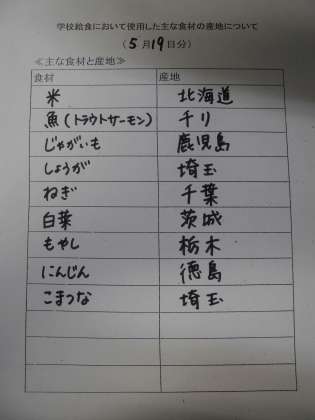 学校給食において使用した主な食材の産地について
(5月19日分)
≪主な食材と産地≫
食材 産地
米 北海道
魚(トラウトサーモン) チリ
じゃがいも 鹿児島
しょうが 埼玉
ねぎ 千葉
白菜 茨城
もやし 栃木
にんじん 徳島
こまつな 埼玉